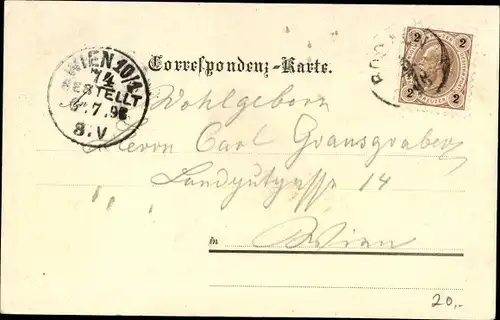 WIEN 10/1
BESTELLT
7.98
8.V
Correspondenz-Karte.
2 2
2 2
An
Wohlgeborn
Herrn Carl Gransgraber
Landgutgasse 14
in Wien
20,-